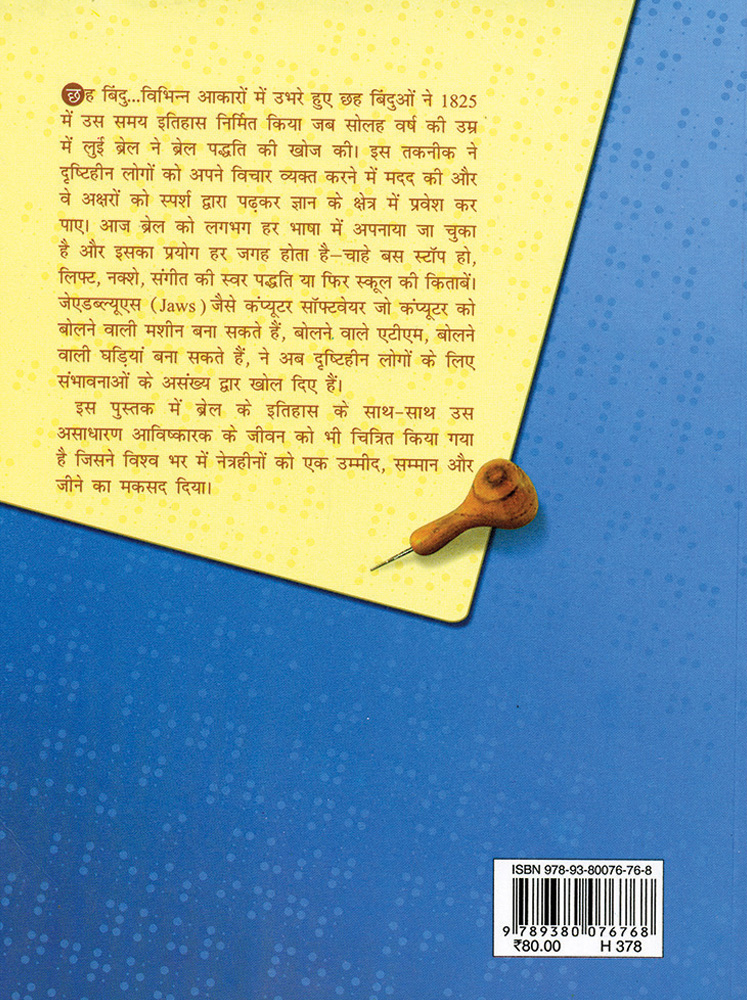 छह बिंदु...विभिन्न आकारों में उभरे हुए छह बिंदुओं ने 1825
में उस समय इतिहास निर्मित किया जब सोलह वर्ष की उम्र
में लुई ब्रेल ने ब्रेल पद्धति की खोज की। इस तकनीक ने
दृष्टिहीन लोगों को अपने विचार व्यक्त करने में मदद की और
वे अक्षरों को स्पर्श द्वारा पढ़कर ज्ञान के क्षेत्र में प्रवेश कर
पाए। आज ब्रेल को लगभग हर भाषा में अपनाया जा चुका
है और इसका प्रयोग हर जगह होता है–चाहे बस स्टॉप हो,
लिफ्ट, नक्शे, संगीत की स्वर पद्धति या फिर स्कूल की किताबें।
जेएडब्ल्यूएस (Jaws) जैसे कंप्यूटर सॉफ्टवेयर जो कंप्यूटर को
बोलने वाली मशीन बना सकते हैं, बोलने वाले एटीएम, बोलने
वाली घड़ियां बना सकते हैं, ने अब दृष्टिहीन लोगों के लिए
संभावनाओं के असंख्य द्वार खोल दिए हैं।
इस पुस्तक में ब्रेल के इतिहास के साथ-साथ उस
असाधारण आविष्कारक के जीवन को भी चित्रित किया गया
है जिसने विश्व भर में नेत्रहीनों को एक उम्मीद, सम्मान और
जीने का मकसद दिया।
ISBN 978-93-80076-76-8
9 789380 076768
₹80.00 H 378